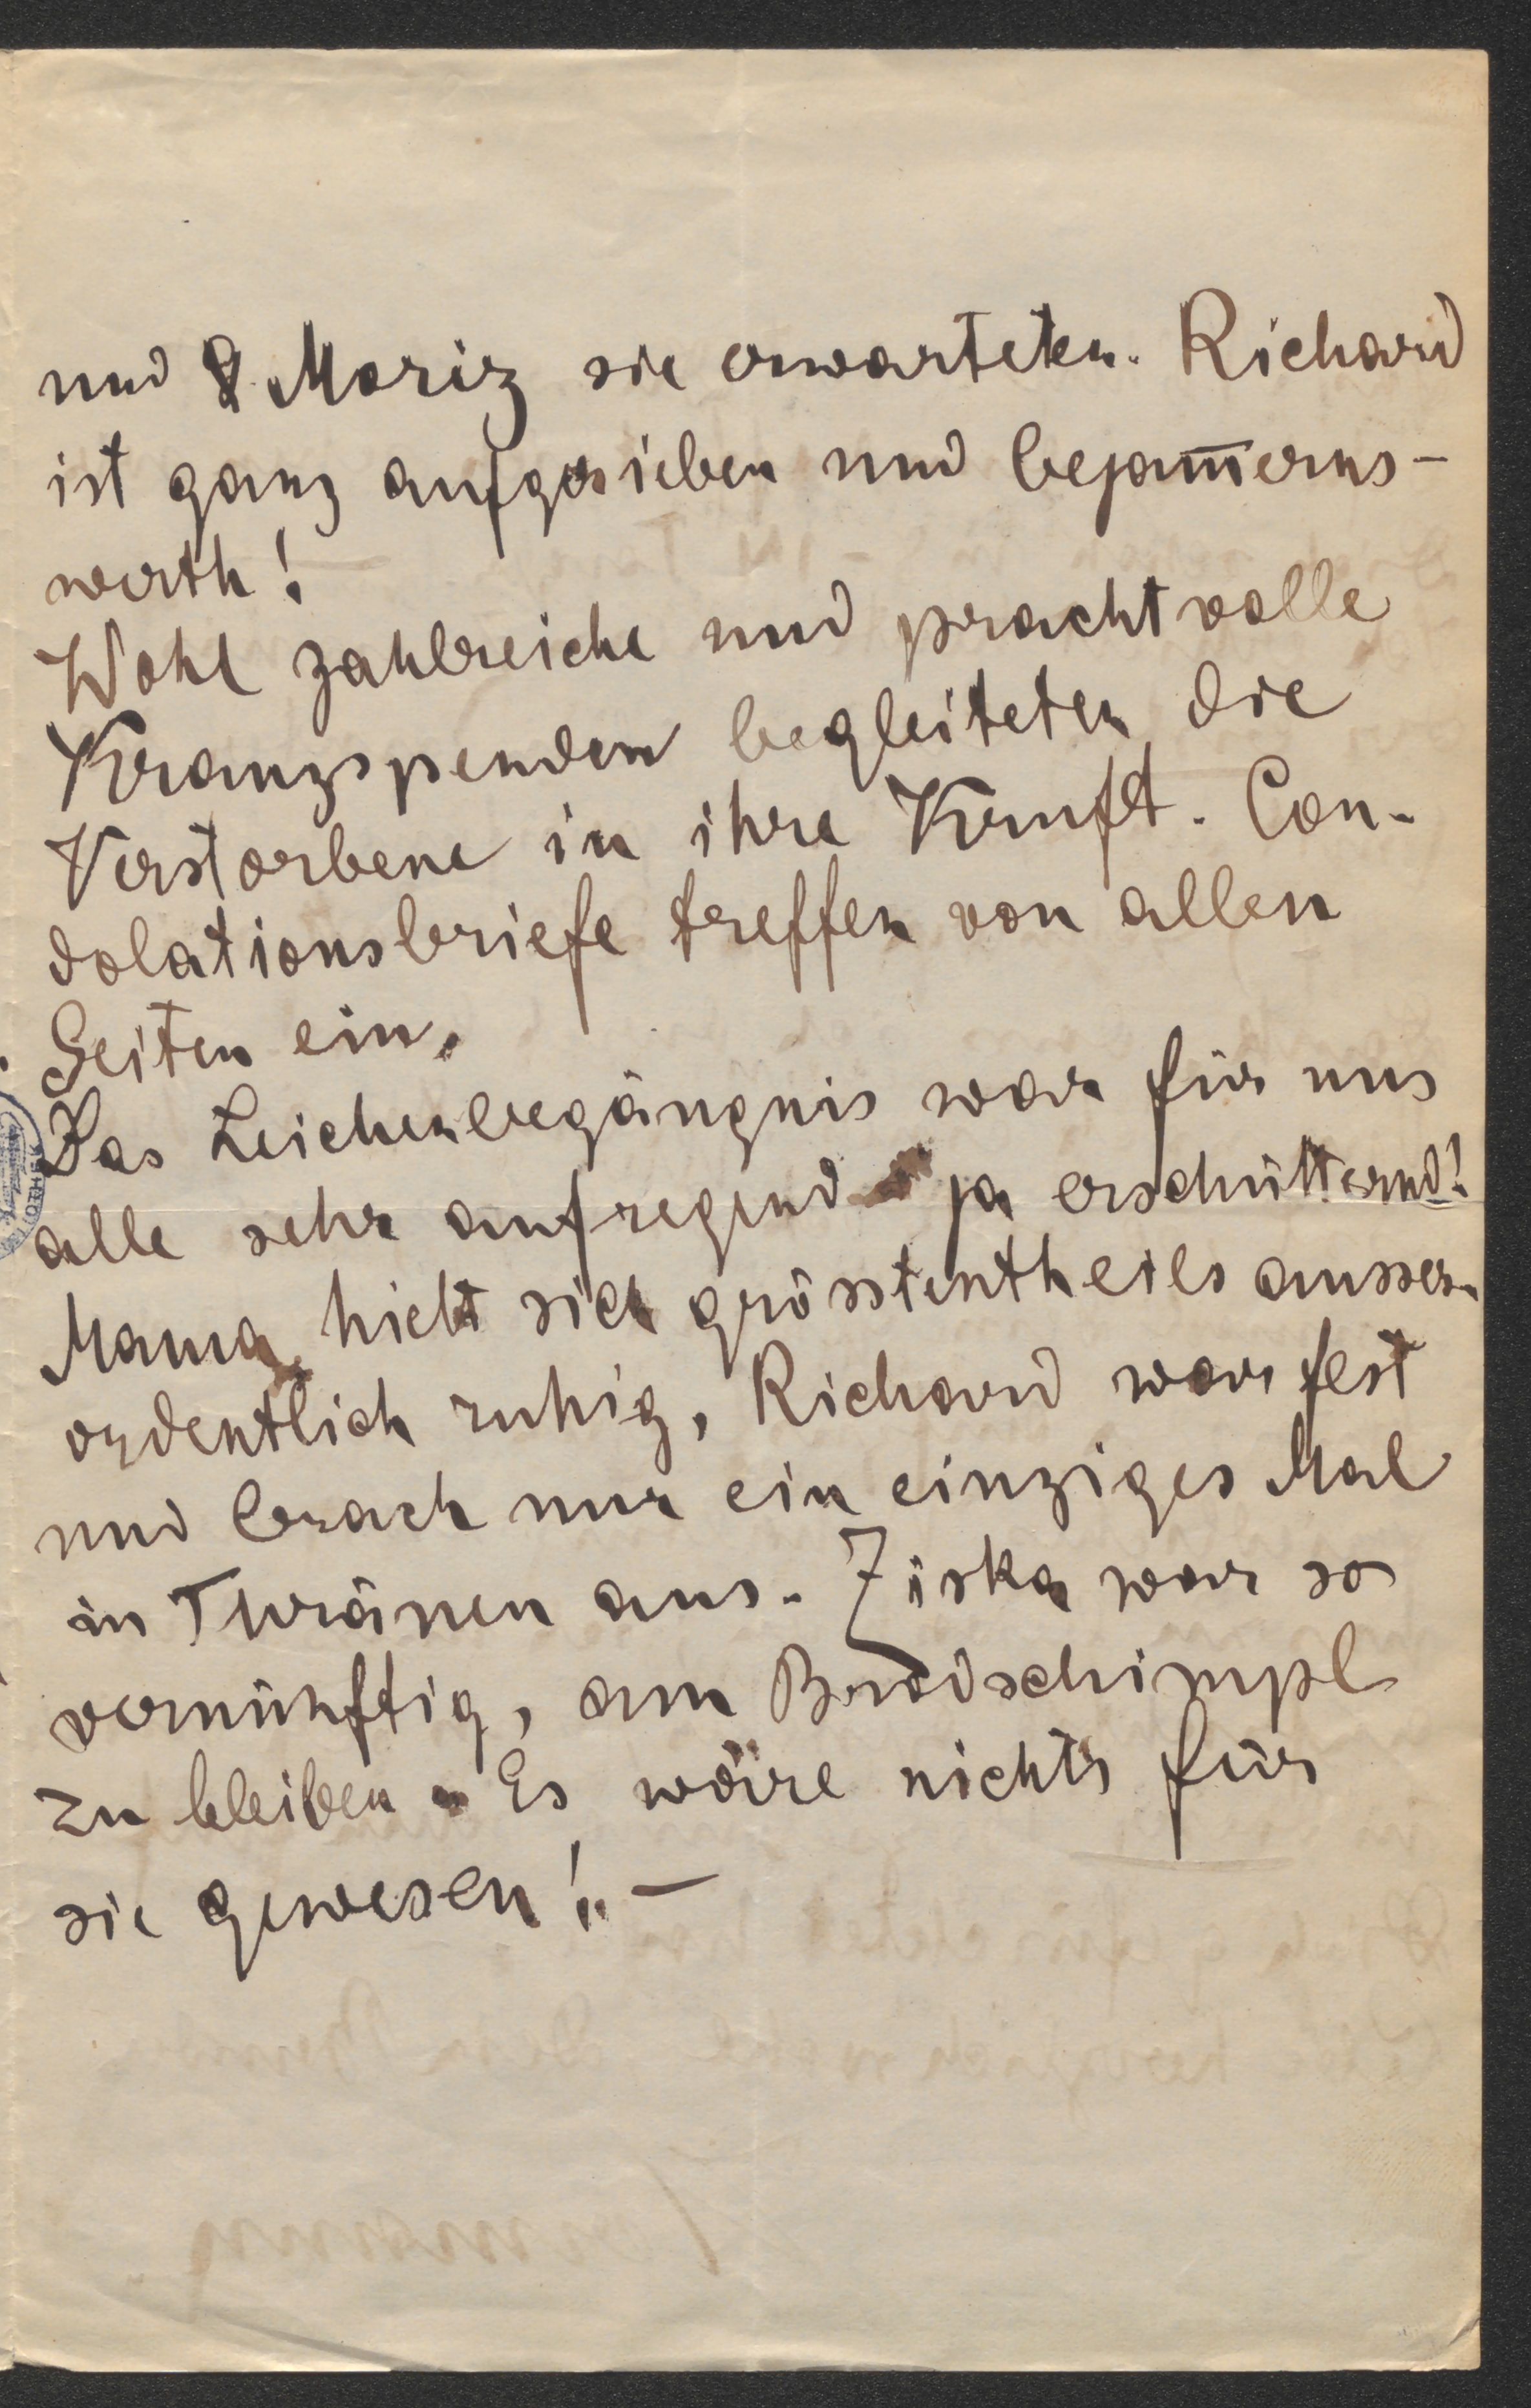 und O. Moriz sie erwarteten. Richard
ist ganz aufgerieben und bejam̄erns-
werth!
Wohl zahlreiche und prachtvolle
Kranzspenden begleiteten die
Verstorbene in ihre Kruft. Con-
dolationsbriefe treffen von allen
Seiten ein.
Das Leichenbegängnis war für uns
alle sehr aufregend ja erschütternd!
Mama hielt sich grösstentheils ausser-
ordentlich ruhig, Richard war fest
und brach nur ein einziges Mal
in Thränen aus. Ziska war so
vernünftig, am Brudschimpl
zu bleiben. Es wäre nichts für
sie gewesen! –